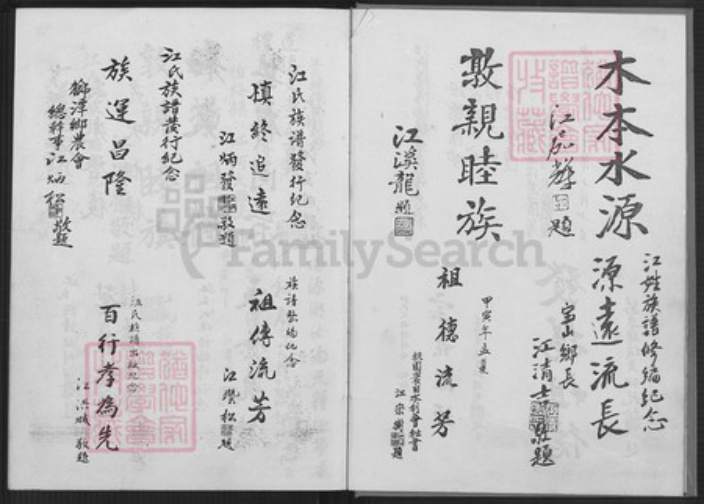 江姓族譜修編紀念
木本水源
源遠流長
富山鄉長
江清士敬題
江永輝題
敦親睦族
江溪龍題
祖德流芳
甲寅年孟夏
江宗興題
江氏族譜發行紀念
慎終追遠
江炳發敬題
江氏族譜發行紀念
族運昌隆
獅潭鄉農會
總幹事江炳松敬題
族譜發編紀念
祖傳流芳
江騰松題
江氏族譜出版紀念
百行孝為先
江洪城敬題
FamilySearch